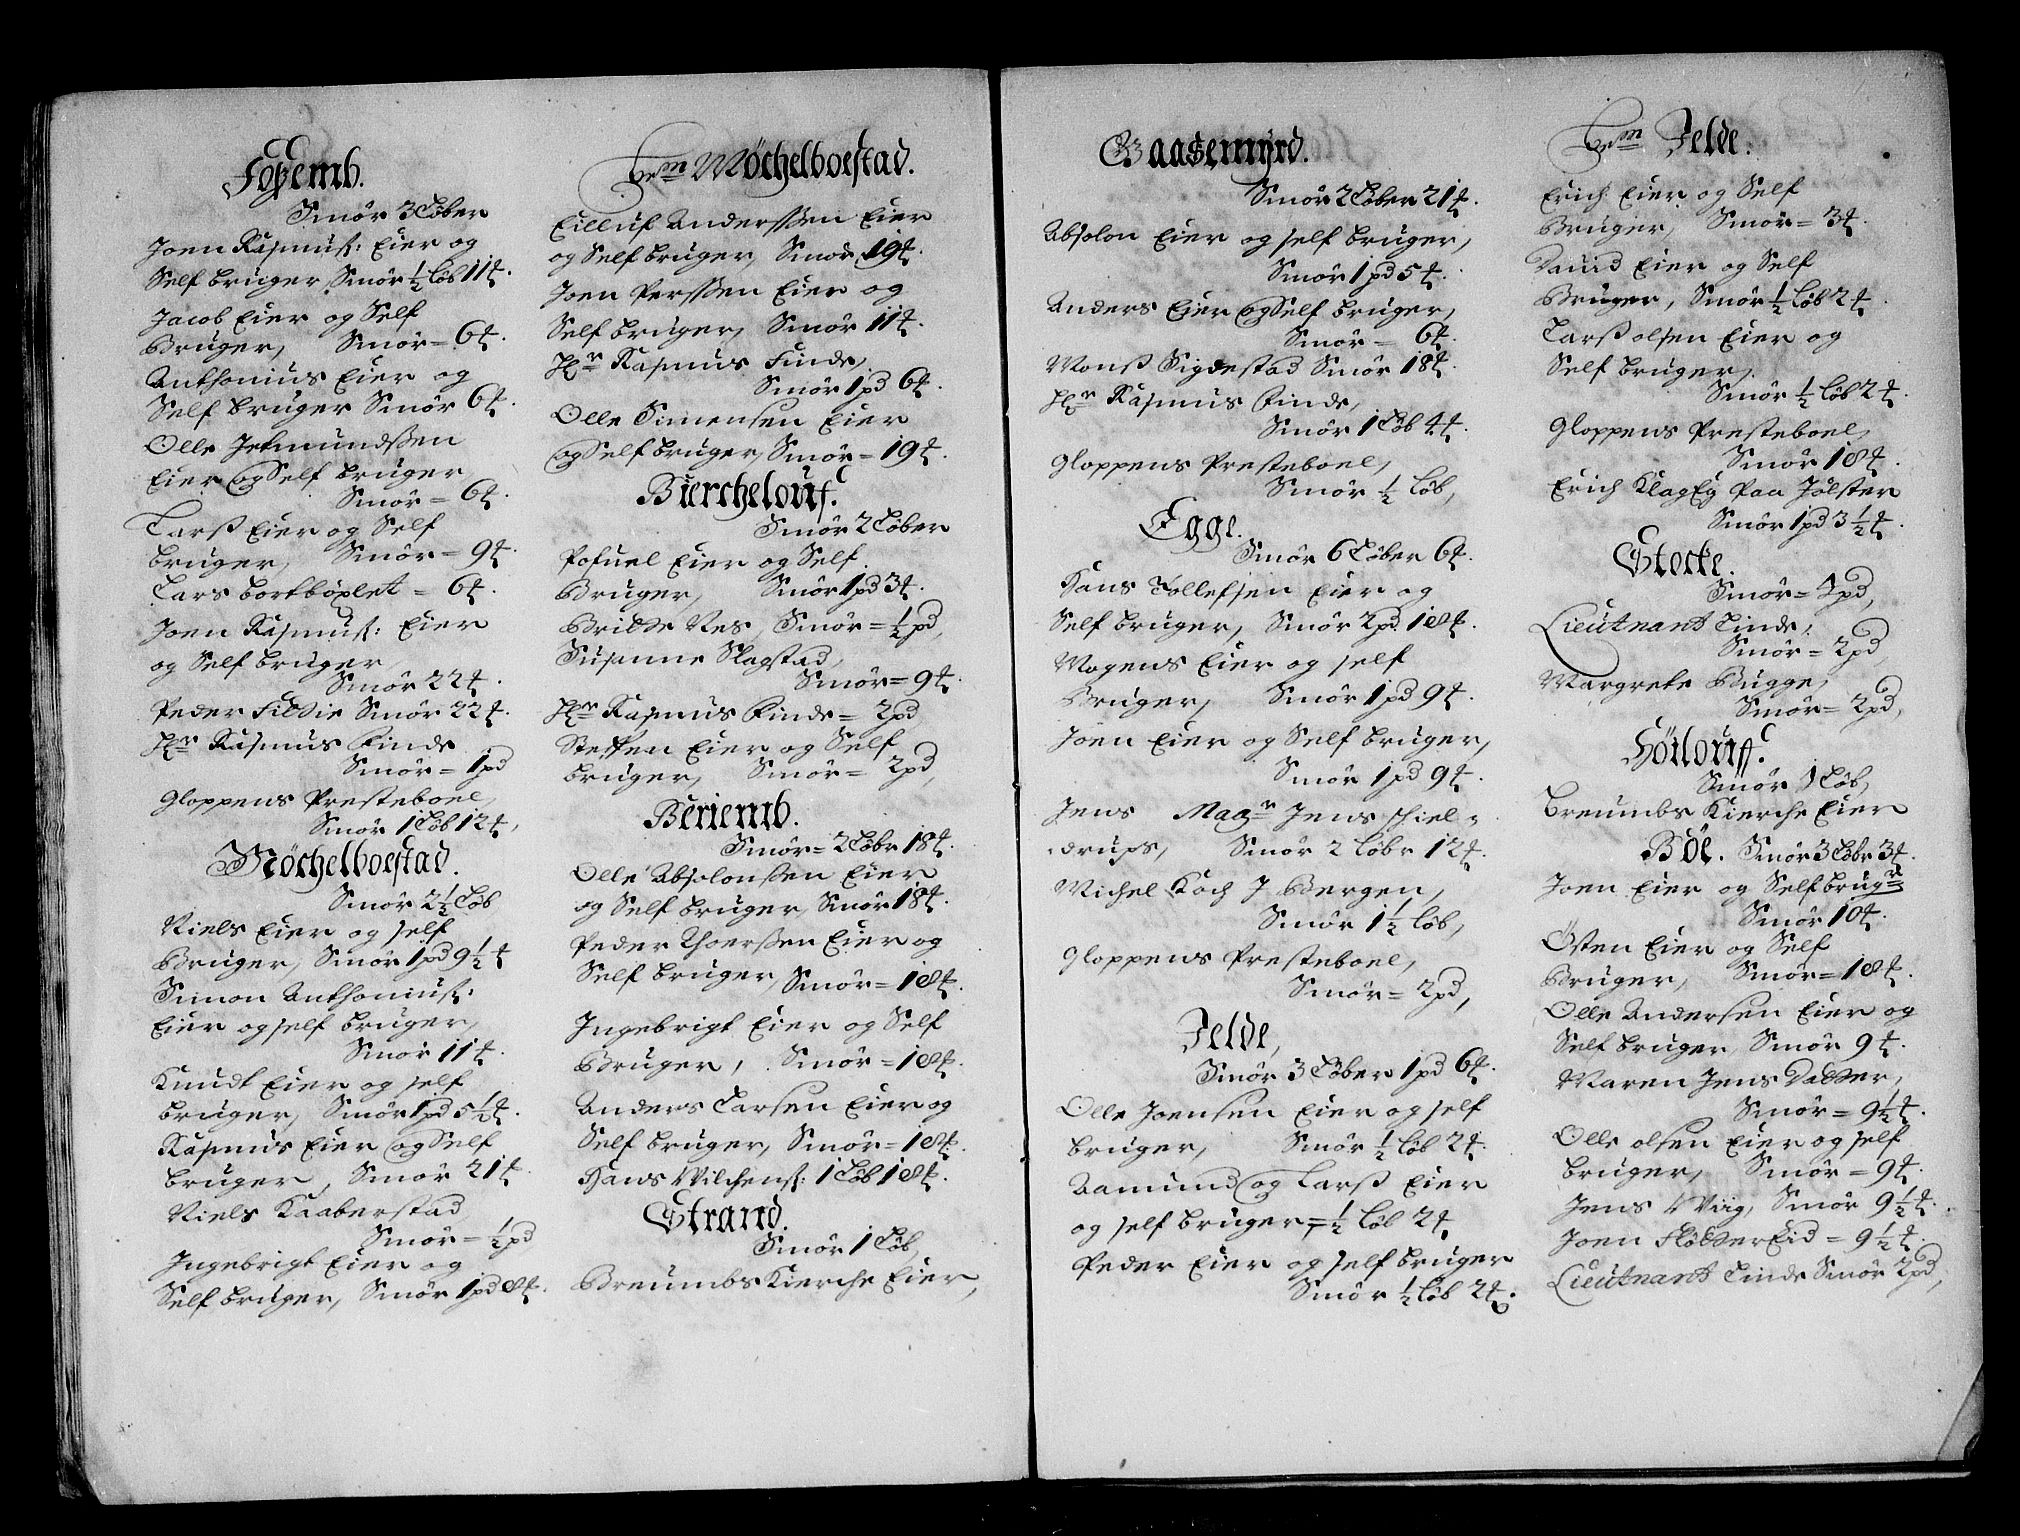 Foßemb.
Smör 3 Löber
Joen Rasmus: Eier og
Self bruger Smör ½ löb 11 ŧ.
Jacob Eier og Self
Bruger, Smör = 6 ŧ.
Anthonius Eier og
Self bruger Smör 6 ŧ.
Olle Jetmundßen
Eier og Self bruger
Smör = 6 ŧ.
Larß Eier og Self
bruger, Smör = 9 ŧ.
Lars = 6 ŧ.
Joen Rasmus: Eier
og Self bruger,
Smör 22 ŧ.
Peder Smör 22 ŧ.
Hr Rasmus Finde
Smör = 1 pd
Gloppens Presteboel,
Smör 1 Löb 12 ŧ,
Möchelboestad.
Smör 2½ Löb
Niels Eier og self
Bruger, Smör 1 pd 9½ ŧ
Simon Anthonius:
Eier og self bruger,
Smör 11 ŧ.
Knudt Eier og self
bruger, Smör 1 pd 5½ ŧ.
Rasmus Eier og Self
bruger, Smör 21 ŧ.
Niels Kaaberstad,
Smör = ½ pd
Ingebrigt Eier og
Self bruger, Smör 1 pd 8 ŧ.
Möchelboestad.
Eilluf Anderssen Eier
og Self bruger, Smör 19 ŧ.
Joen Perssen Eier og
Self bruger, Smör 11 ŧ.
Hr Rasmus Finde,
Smör 1 pd 6 ŧ.
Olle Simensen Eier
og Self bruger, Smör = 19 ŧ.
Bierchelouf.
Smör 2 Löber
Pofuel Eier og Self
Bruger, Smör 1 pd 3 ŧ.
Brilde Nes, Smör = ½ pd,
Susanne Slagstad,
Smör = 9 ŧ.
Hr Rasmus Finde = 2 pd
Steffen Eier og Self
bruger, Smör = 2 pd,
Beriemb.
Smör = 2 Löbr 18 ŧ.
Olle Absolonßen Eier
og Self bruger, Smör 18 ŧ.
Peder Thoerßen Eier og
Self bruger, Smör = 18 ŧ.
Ingebrigt Eier og Self
Bruger, Smör = 18 ŧ.
Anders Larsen Eier og
Self bruger, Smör = 18 ŧ.
Hans Wilchens: 1 Löb 18 ŧ.
Strand.
Smör 1 Löb,
Breumbs Kierche Eier,
Gaasemyrd.
Smör 2 Löber 21 ŧ.
Absolon Eier og self bruger,
Smör 1 pd 5 ŧ.
Anders Eier og Self bruger,
Smör = 6 ŧ.
Monß Sigdestad Smör 18 ŧ.
Hr Rasmus Finde,
Smör 1 Löb 4 ŧ.
Gloppens Presteboel,
Smör ½ löb,
Egge.
Smör 6 Löber 6 ŧ.
Hans Tollefsen Eier og
Self bruger, Smör 2 pd 18 ŧ.
Mogens Eier og self
Bruger, Smör 1 pd 9 ŧ.
Joen Eier og Self bruger,
Smör 1 pd 9 ŧ.
Jens Magr Jens schiel=
drups, Smör 2 löbr 12 ŧ.
Michel Koch J Bergen,
Smör 1½ löb,
Gloppens Presteboel,
Smör = 2 pd,
Jelde,
Smör 3 Löber 1 pd 6 ŧ.
Olle Joensen Eier og self
bruger, Smör ½ löb 2 ŧ.
Aamund og Larß Eier
og self bruger, = ½ löb 2 ŧ
Peder Eier og self bruger
Smör ½ löb 2 ŧ.
Jelde.
Erich Eier og Self
Bruger, Smör = 3 ŧ.
Daund Eier og Self
Bruger, Smör ½ löb 2 ŧ.
Larß olsen Eier og
Self bruger,
Smör ½ löb 2 ŧ.
Gloppens Presteboel,
Smör 18 ŧ.
Erich Klageg Paa Jölster
Smör 1 pd 3½ ŧ.
Stocke.
Smör = 4 pd,
Lieutnant Linde,
Smör = 2 pd,
Margrete Bugge,
Smör = 2 pd,
Höilouff.
Smör 1 Löb,
Breumbs Kierche Eier
Böe. Smör 3 Löbr 3 ŧ.
Joen Eier og Self brugr
Smör 10 ŧ.
Östen Eier og Self
Bruger, Smör = 18 ŧ.
Olle Andersen Eier og
Self bruger, Smör 9 ŧ.
Maren Jens Datter,
Smör = 9½ ŧ.
Olle olsen Eier og self
bruger, Smör = 9 ŧ.
Jens Wiig, Smör 9½ ŧ.
Joen Flötter Eid = 9½ ŧ.
Lieutnant Linde Smör 2 pd,